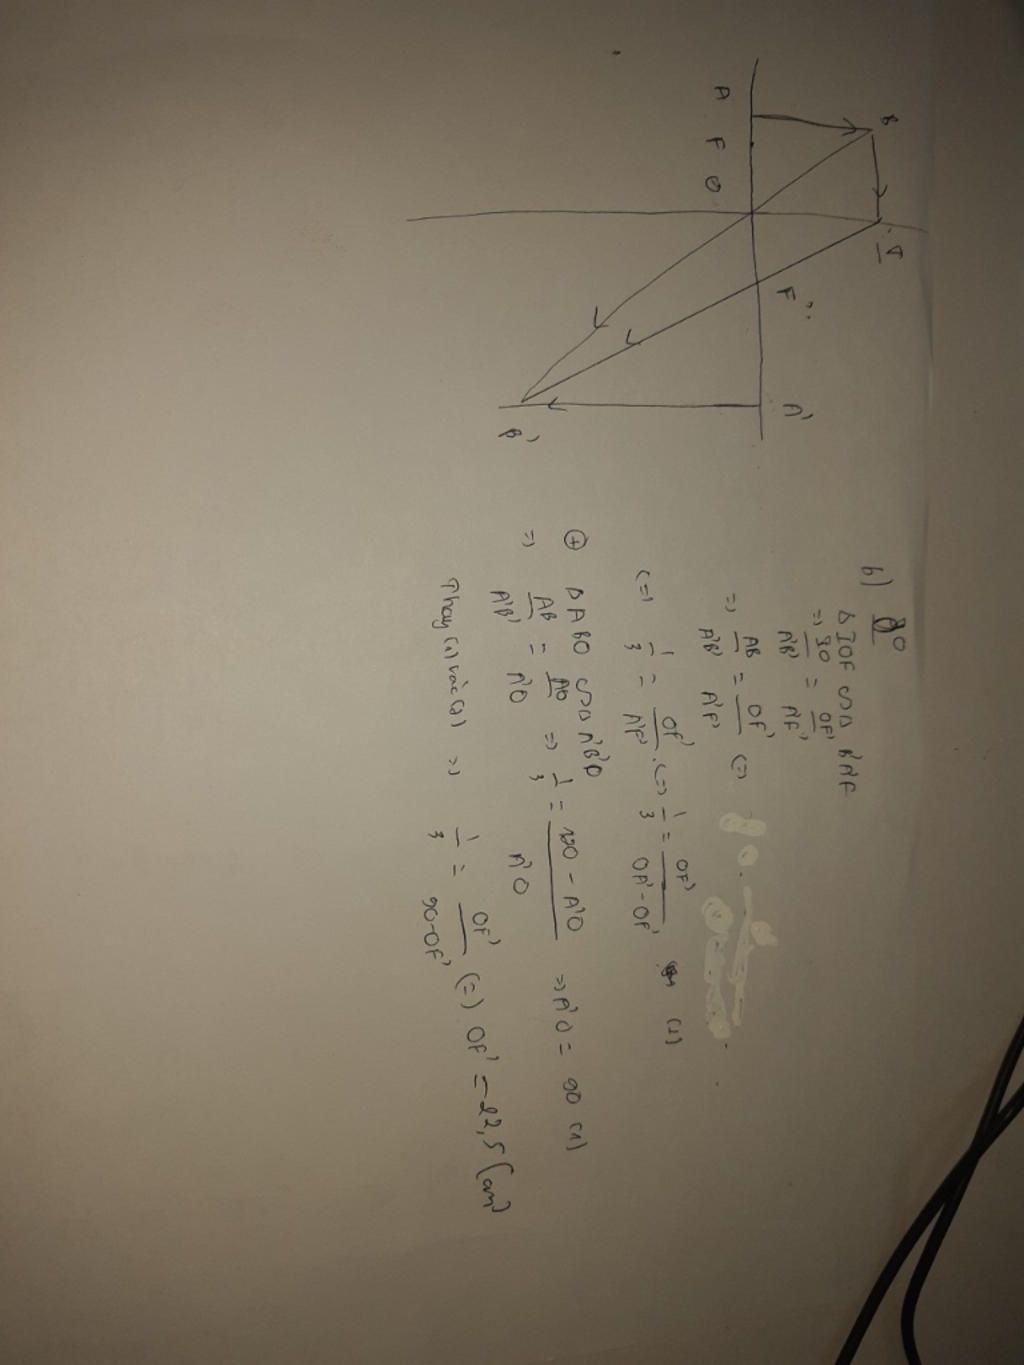 A
F
O
B
I
F'
A'
B'
b)
Δ IOF ∽ Δ B'A'F'
=> IO/A'B' = OF'/A'F'
=> AB/A'B' = OF'/A'F' (=)
(=) 1/3 = OF'/A'F' (=) 1/3 = OF'/OA'-OF' (2)
⊕ Δ ABO ∽ Δ A'B'O
=> AB/A'B' = AO/A'O => 1/3 = 120 - A'O/A'O => A'O = 90 (1)
Thay (1) vào (2) => 1/3 = OF'/90-OF' (=) OF' = 22,5 (cm)